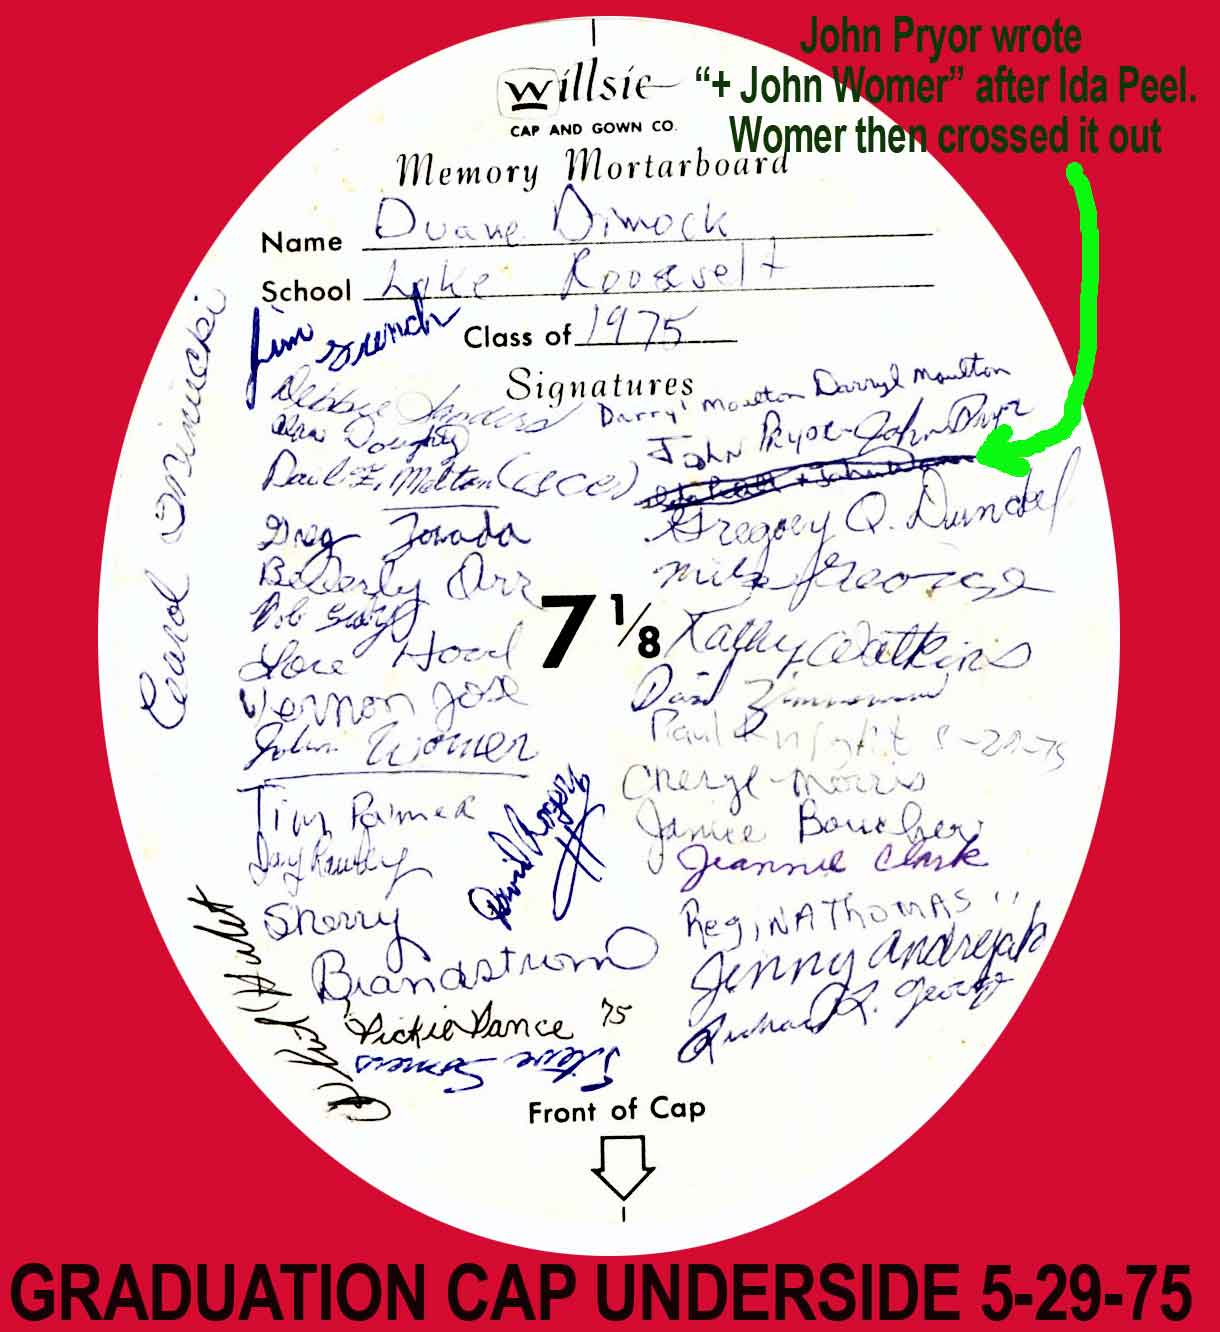 John Pryor wrote
“+ John Womer” after Ida Peel.
Womer then crossed it out
Willsie
CAP AND GOWN CO.
Memory Mortarboard
Name Duane Dimock
School Lake Roosevelt
Class of 1975
Signatures
Jim French
Debbie Sanders
Darryl Moulton Darryl Moulton
Doughty
John Pryor - John Pryor
Paul E. Melton
+ John Womer
Greg Towada
Gregory Q. Dundel
Beverly Orr
Mike George
Bob
7 1/8
Hood
Kathy Watkins
Vernon Jose
Zimmerman
John Womer
Paul Knight 5-29-75
Tim Palmer
Cheryl Morris
Janice Boucher
David Rogers
Jeannie Clark
Sherry
Brandstrom
Regina Thomas
Jenny Andrejak
Richard R. George
Vickie Vance '75
Steve Somers
Carol
Front of Cap
GRADUATION CAP UNDERSIDE 5-29-75